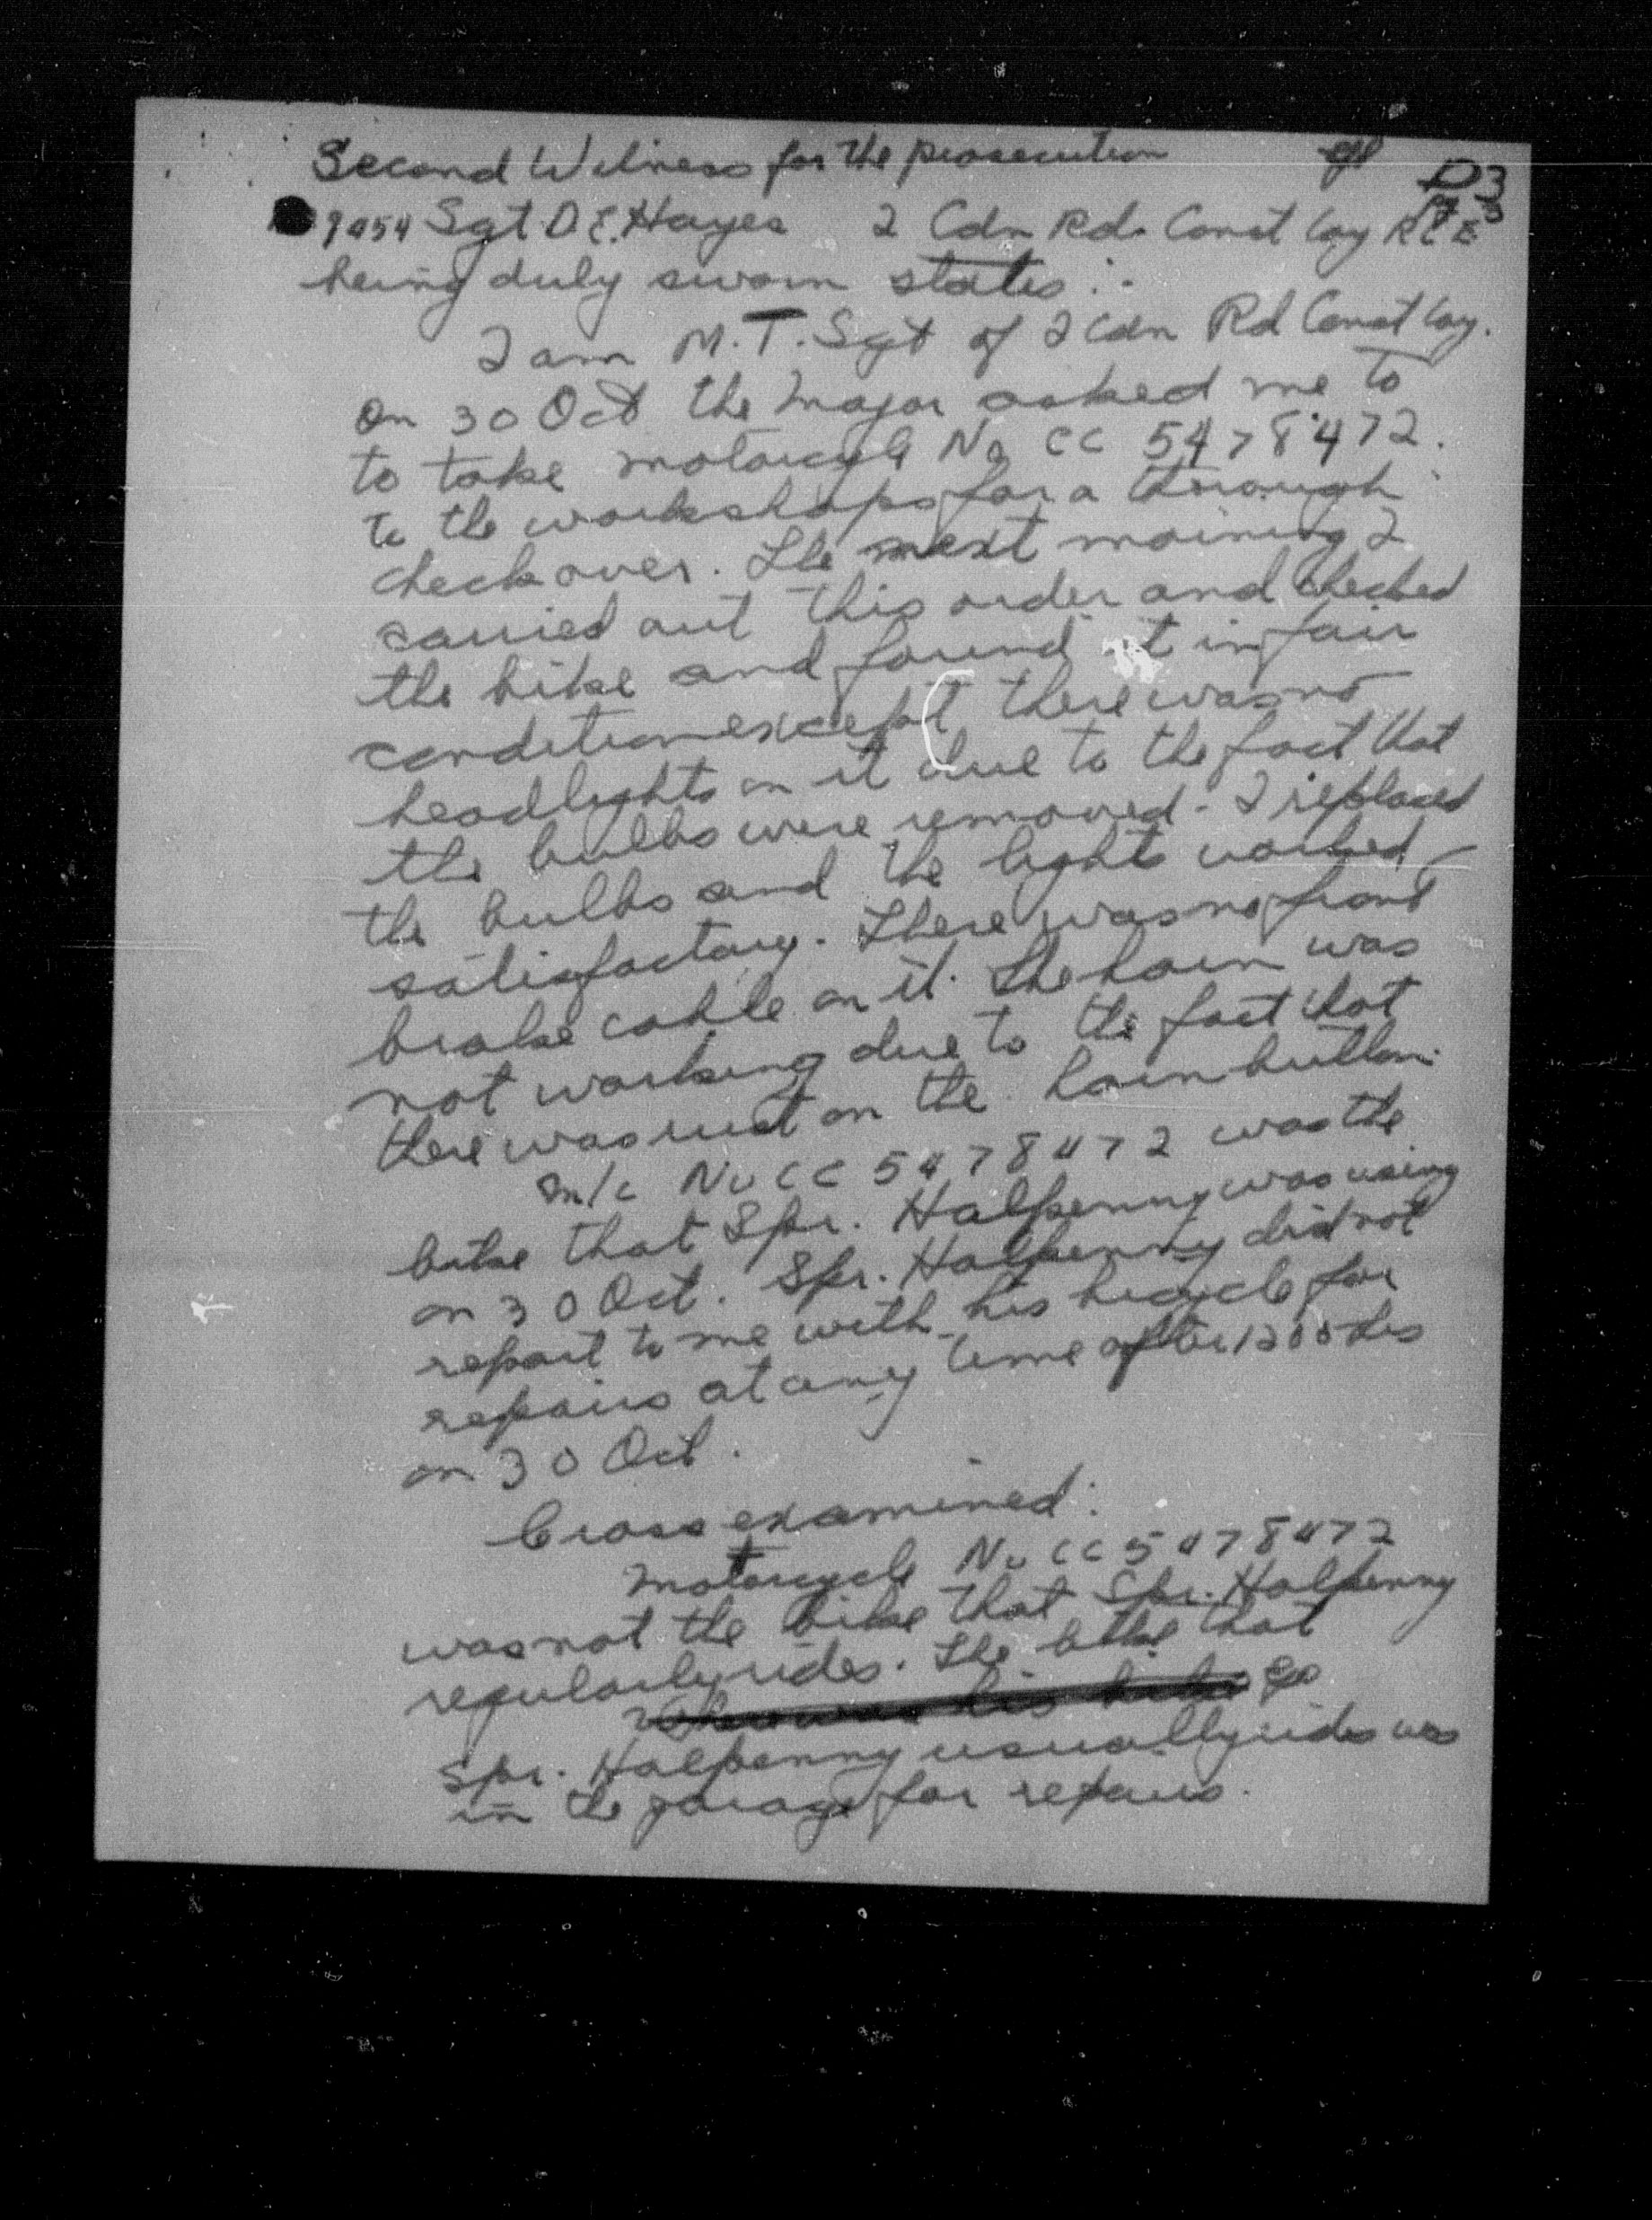 Second Witness for the prosecution
D3
9054 Sgt D.E. Hayes 2 Cdn Rd Const Coy RCE
being duly sworn states:-
I am M.T. Sgt of 2 Cdn Rd Const Coy.
On 30 Oct the Major asked me to
to take motorcycle No CC 5478472.
to the workshops for a thorough
check over. The next morning I
carried out this order and checked
the bike and found it in fair
condition except there was no
headlights on it due to the fact that
the bulbs were removed - I replaced
the bulbs and the lights worked
satisfactory. There was no front
brake cable on it. The horn was
not working due to the fact that
there was rust on the horn button.
M/c No CC 5478472 was the
bike that Spr. Halpenny was using
on 30 Oct. Spr. Halpenny did not
report to me with his bicycle for
repairs at any time after 1200 hrs
on 30 Oct.
Cross examined:
Motorcycle No CC 5478472
was not the bike that Spr. Halpenny
regularly rides. The bike that
Spr. Halpenny usually rides was
in the garage for repairs.